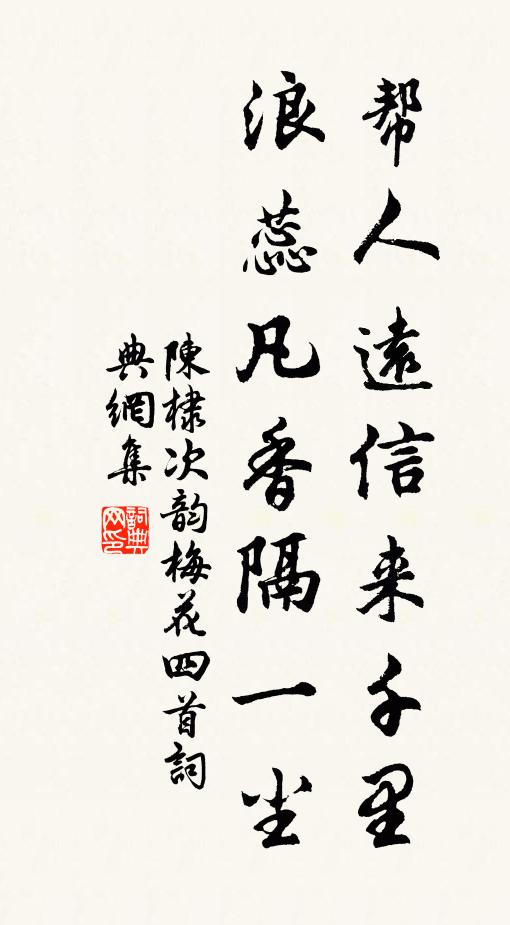 帮人遠信来千里
浪蕊凡香隔一尘
陳棣次韵梅花四首詞
典網集
詞典
网印